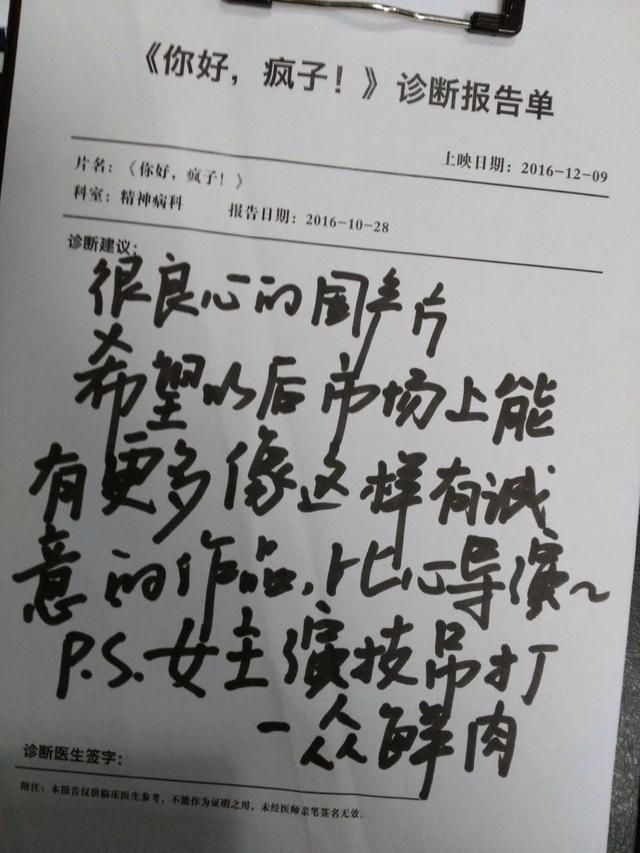 《你好，疯子！》诊断报告单
上映日期：2016-12-09
片名：《你好，疯子！》
科室：精神病科 报告日期：2016-10-28
诊断建议：
很良心的国产片
希望以后市场上能
有更多像这样有诚
意的作品，比心导演~
P.S.女主演技吊打
一众鲜肉
诊断医生签字：
附注：本报告仅供临床医生参考，不能作为证明之用，未经医师亲笔签名无效。